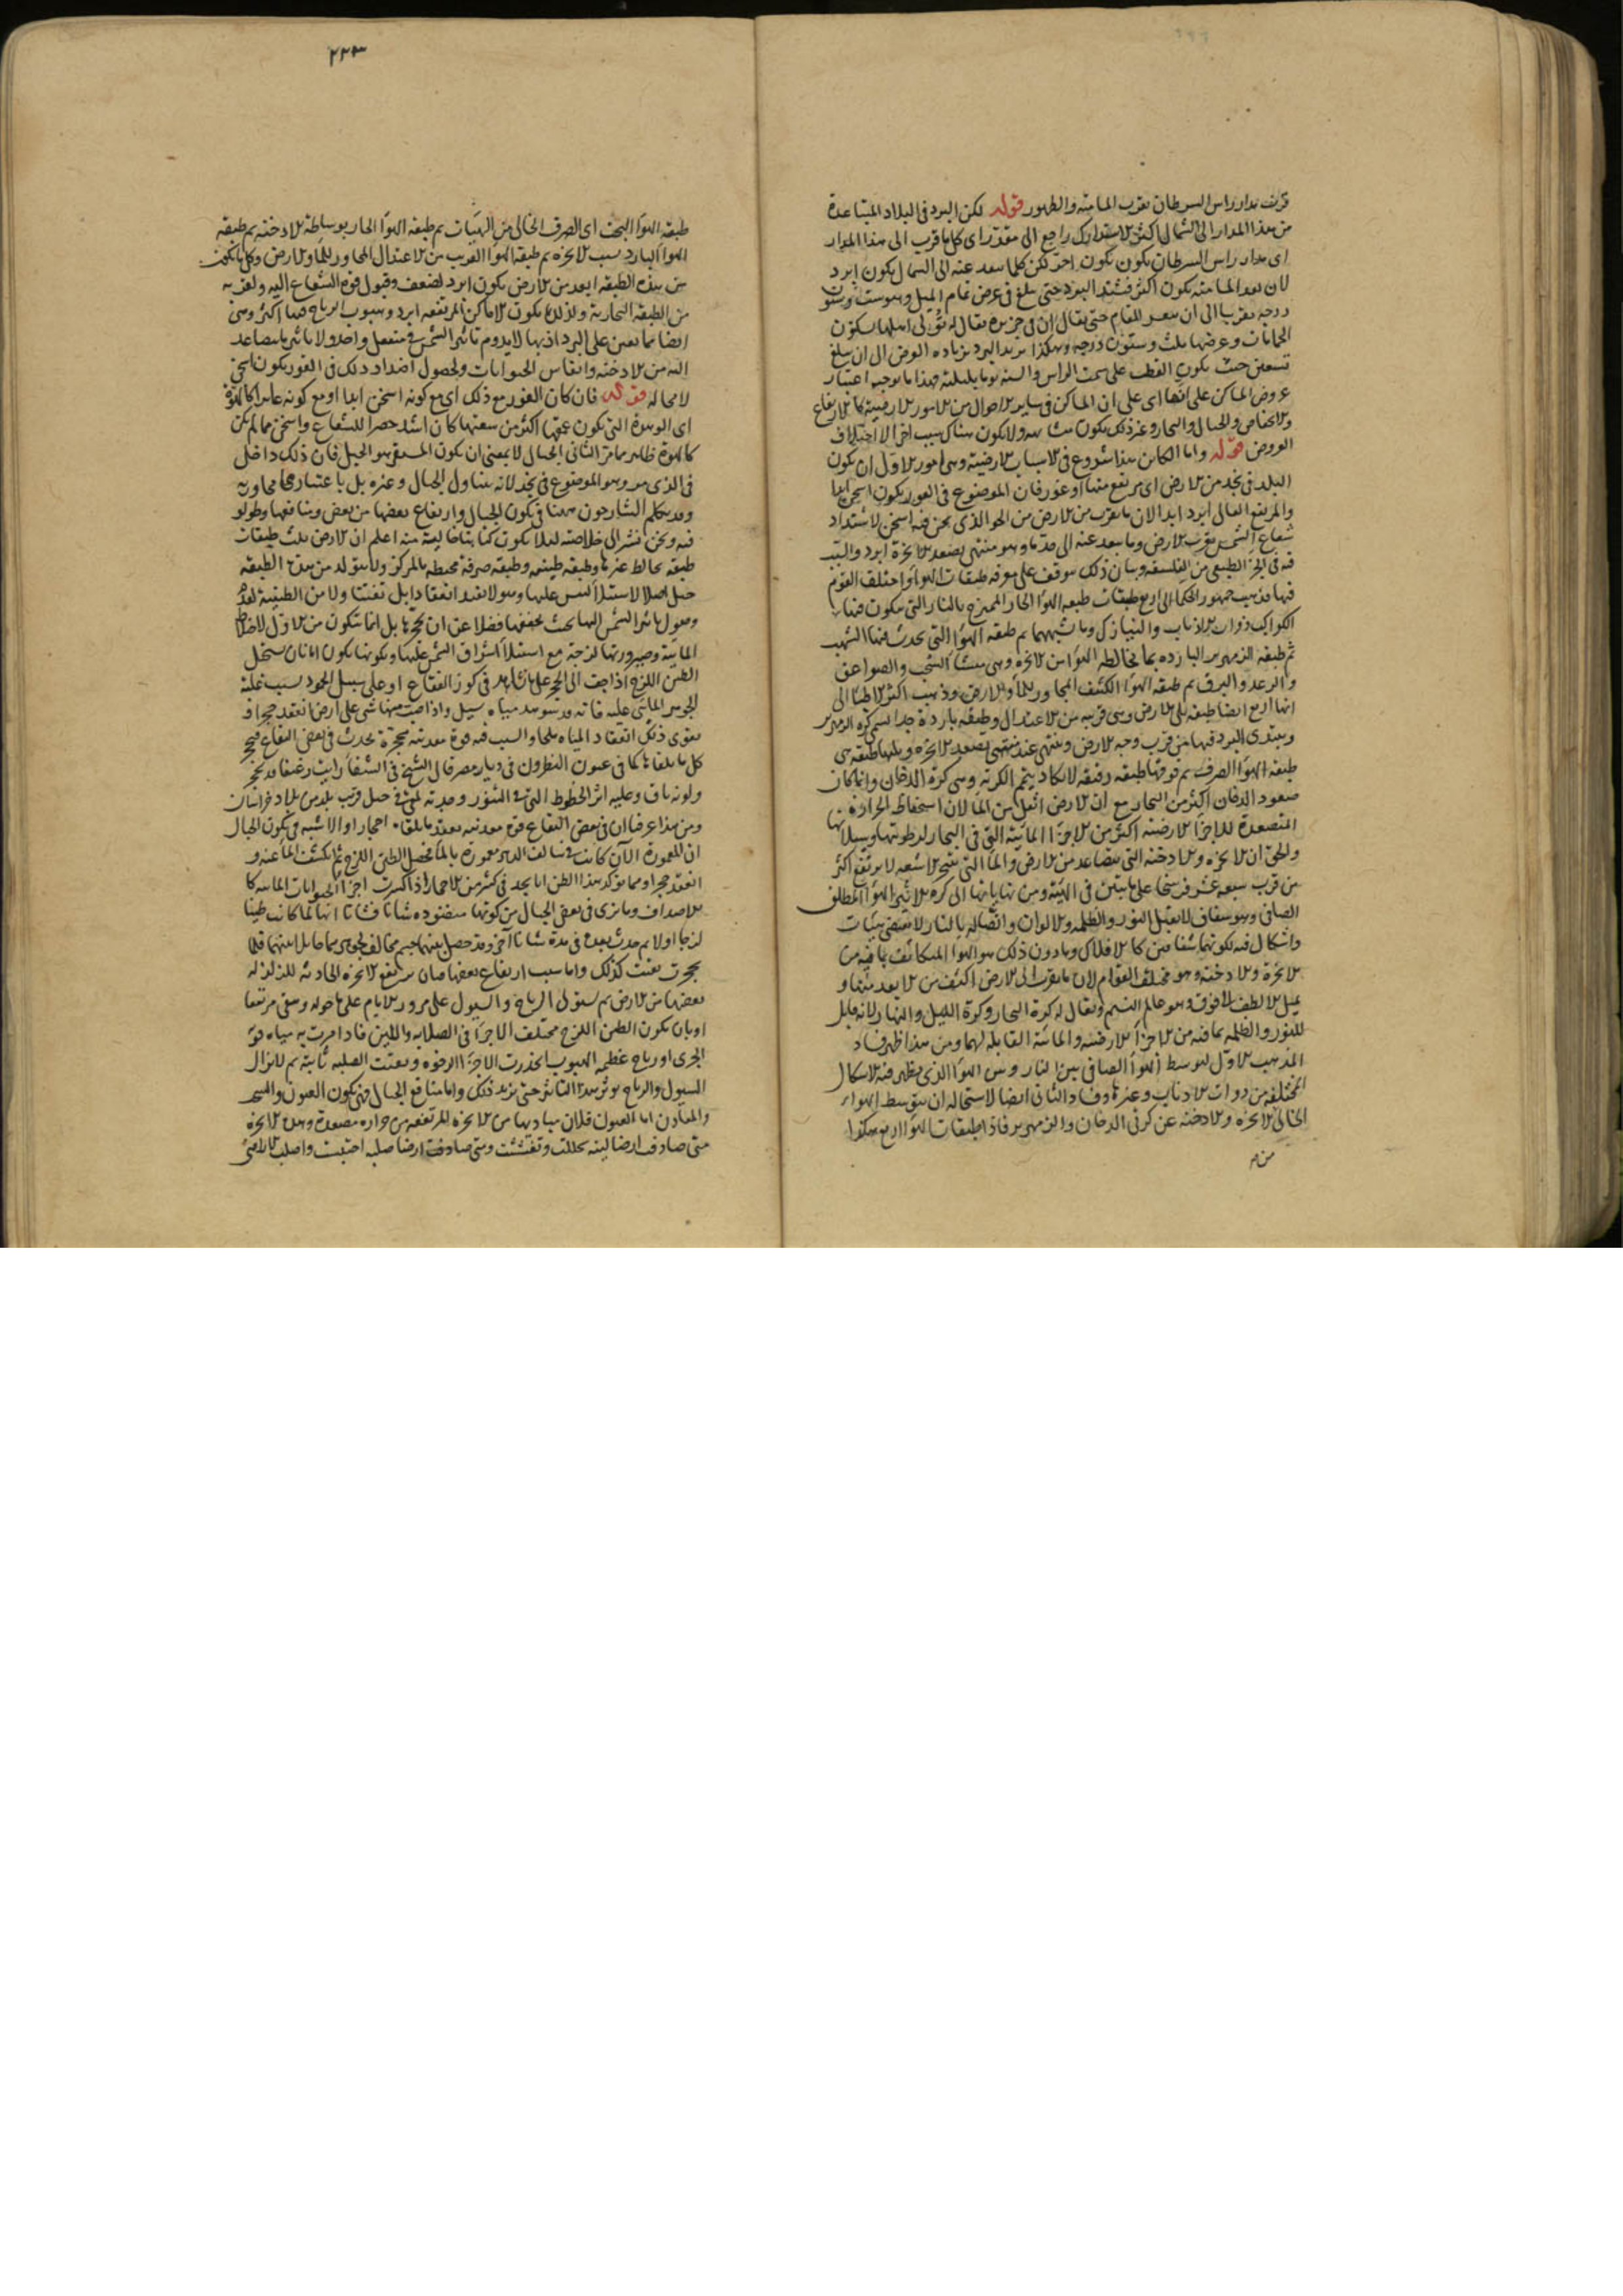 قريب مدار راس السرطان بقرب المسامتة والظهور قوله لكن البرد فى البلاد المتباعدة
من هذا المدار الى الشمال اكثر الاستدراك راجع الى مقدر اى كل ما قرب الى هذا المدار
اى مدار راس السرطان يكون احر لكن كلما بعد عنه الى الشمال يكون ابرد
لان بعد المسامتة يكون اكثر فيشتد البرد حتى يبلغ فى عرض تمام الميل وهو ست وستون
درجة تقريبا الى ان المقام حتى يقال ان فى جزيرة يقال لها تولى اهلها يسكنون
الحمامات وعرضها ثلث وستون درجة وهكذا يزيد البرد بزيادة العرض الى ان يبلغ
تسعين حيث يكون القطب على سمت الراس والسنة يوما بليلته هذا ما يوجبه اعتبار
عروض المساكن على انفها اى على ان المساكن فى ساير الاحوال من الامور الارضية كالارتفاع
والانخفاض والجبال والبحار وغير ذلك يكون ولا يكون هناك سبب اخر الا اختلاف
العروض قوله واما الكاين هذا شروع فى الاسباب الارضية وهى امور الاول ان يكون
البلد فى نجد من الارض اى مرتفع منها او غور فان الموضوع فى الغور يكون اسخن ابدا
والمرتفع العالى ابرد ابدا لان ما يقرب من الارض من الجو الذى نحن فيه اسخن لاشتداد
شعاع الشمس بقرب الارض وما بعد عنه الى حد ما وهو منتهى تصعد الابخرة ابرد والسبب
فيه فى الجزء الطبيعى من الفلسفة وبيان ذلك يتوقف على معرفة طبقات الهواء واختلف القوم
فيها فذهب جمهور الحكما الى اربع طبقات طبقة الهواء الحار الممتزج بالنار التى يتكون فيها
الكواكب ذوات الاذناب والنيازك وما شبههما ثم طبقة الهواء التى تحدث فيها الشهب
ثم طبقة الزمهرير الباردة بما يخالطه الهواء من الابخرة وهى منشأ السحب والصواعق
والرعد والبرق ثم طبقة الهواء الكثيف المجاور للماء والارض وذهب اكثر الاطبا الى
انها اربع ايضا طبقة تلى الارض وهى قريبة من الاعتدال وطبقة باردة جدا تسمى كرة الزمهرير
ويبتدى البرد فيها من قرب وجه الارض وينتهى عند منتهى تصعد الابخرة ويليها طبقة هى
طبقة الهواء الصرف ثم فوقها طبقة دقيقة لا يكاد يتم الكرية وهى كرة الدخان وانما كان
صعود الدخان اكثر من البخار مع ان الارض اثقل من الماء لان استحفاظ الحرارة
المتصعدة للاجزاء الارضية اكثر من الاجزاء المائية التى فى البخار لرطوبتها وسيلانها
والحق ان الابخرة والادخنة التى تتصاعد من الارض والماء التى تنتهى الاشعه لا يرتفع اكثر
من قرب سبعة عشر فرسخا على ما بين فى الهيئة ومن نهاياتها الى كرة الاثير الهواء المطلق
الصافى وهو شفاف لا يقبل النور والظلمة والالوان واتصاله بالنار لا يقتضى هيئات
واشكال فيه لكونهما شفافين كالافلاك وما دون ذلك هو الهواء المتكاثف بما فيه من
الابخرة والادخنة وهو مختلف القوام لان ما يقرب الى الارض اكثف من الابعد منها و
يميل الالطف الى فوق وهو عالم النسيم ويقال له كرة البخار وكرة الليل والنهار لانه قابل
للنور والظلمة بما فيه من الاجزاء الارضية والمائية القابلة لهما ومن هذا ظهر فساد
المذهب الاول لتوسط الهواء الصافى بين النار وبين الهواء الذى يظهر فيه الاشكال
المختلفة من ذوات الاذناب وغيرها وفساد الثانى ايضا لاستحالة ان يتوسط الهواء
الخالى الابخرة والادخنة عن كرتى الدخان والزمهرير فاذا طبقات الهواء اربع هكذا
٢٢٣
طبقة الهواء البحت اى الصرف الخالى من الهيئات ثم طبقة الهواء الحار بوساطة الادخنة ثم طبقة
الهواء البارد بسبب الابخرة ثم طبقة الهواء القريب من الاعتدال المجاور للماء والارض وكل ما يكون
من هذه الطبقة ابعد من الارض يكون ابرد لضعف وقبول قوة الشعاع اليه ولقربه
من الطبقة البخارية ولذلك يكون الاماكن المرتفعة ابرد وهبوب الرياح فيها اكثر وهى
ايضا مما تعين على البرد اذ بها لا يدوم تاثير الشمس فى منفعل واحد ولا تاثير ما يتصاعد
اليه من الادخنة وانفاس الحيوانات ولحصول اضداد ذلك فى الغور يكون اسخن
لا محالة قوله فان كان الغور مع ذلك اى مع كونه اسخن ابدا او مع كونه غايرا كالهوة
اى الوهدة التى يكون عمقها اكثر من سعتها كان اشد حصرا للشعاع واسخن مما لم يكن
كالهوة ظاهر مما مر الثانى الجبال لا بمعنى ان يكون المستقر هو الجبل فان ذلك داخل
فى الذى مر وهو الموضوع فى نجد لانه يتناول الجبال وغيره بل باعتبار مجاورته
وقد تكلم الشارحون ههنا فى تكون الجبال وارتفاع بعضها من بعض ومنافعها وطولوا
فيه ونحن نشير الى خلاصته لئلا يكون كتابنا خاليا منه اعلم ان الارض ثلث طبقات
طبقة يخالط غيرها وطبقة طينية وطبقة صرفة محيطة بالمركز ولا يتولد من هذه الطبقة
جبل اصلا لاستيلاء اليبس عليها وهو لا يفيد انعقادا بل تفتتا ولا من الطينية لعدم
وصول تاثير الشمس اليها بحيث يجففها فضلا عن ان يحجرها بل انما يتكون من الاول لاختلاط
المائية وصيرورتها لزجة مع استيلاء اشراق الشمس عليها وتكونها يكون اما بان يستحيل
الطين اللزج اذا جف الى الحجر على ما يشاهد فى كوز الفقاع او على سبيل الجمود بسبب غلبة
الجوهر المائى عليه فانه قد شوهد مياه يسيل واذا صب منها شئ على ارض انعقد حجرا و
يقوى ذلك انعقاد المياه ملحا والسبب فيه قوة معدنية محجرة تحدث فى بعض البقاع فتحجر
كل ما يلقاها كما فى عيون النطرون فى ديار مصر قال الشيخ فى الشفاء رايت رغيفا قد تحجر
ولونه باق وعليه اثر الخطوط التى فى التنور وجدته ملقى فى جبل قرب بلد من بلاد خراسان
ومن هذا عرفنا ان فى بعض البقاع قوة معدنية يعقد ما يلقاه احجارا والاشبه فى تكون الجبال
ان المعمورة الآن كانت فى سالف الدهر مغمورة بالماء فحصل الطين اللزج ثم انكشف الماء عنه و
انعقد حجرا ومما يؤكد هذا الظن انا نجد فى كثير من الاحجار اذا كسرت اجزاء الحيوانات المائية كا
لاصداف وما نرى فى بعض الجبال من كونها منضودة سافا فسافا انها لما كانت طينا
لزجا اولا ثم حدث بعده فى مدة سافا آخر وقد حصل بينهما جسم مخالف لجوهرهما حايلا بينهما فلما
تحجرت بقيت كذلك واما سبب ارتفاع بعضها فبان يرتفع الابخرة الحادثة للزلزلة
بعضها من الارض ثم يستولى الرياح والسيول على مرور الايام على ما حوله وبقى مرتفعا
او بان يكون الطين اللزج مختلف الاجزاء فى الصلابة واللين فاذا مرت به مياه قوية
الجرى او رياح عظيمة الهبوب انحدرت الاجزاء الرخوة وبقيت الصلبة ثابتة ثم لا تزال
السيول والرياح يوثر هذا التاثير حتى يزيد ذلك واما منافع الجبال فهى تكون العيون والسحب
والمعادن اما العيون فلان مباديها من الابخرة المرتفعة من حرارة مصعدة وهذه الابخرة
متى صادفت ارضا لينة تحللت وتفشت ومتى صادفت ارضا صلبة احتبست واصلب الارضى